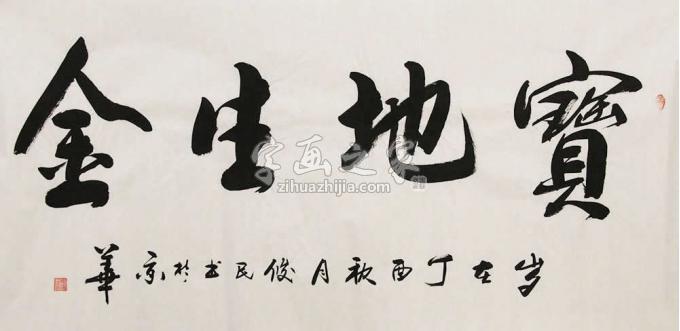 寶地生金
岁在丁酉秋月俊民书於京華
字画之家
zihuazhijia.com